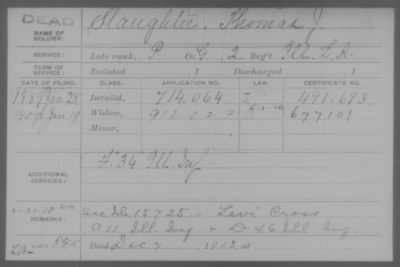 DEAD
NAME OF SOLDIER: Slaughter, Thomas J.
SERVICE: Late rank, P Co. G, 2 Reg't Ill. L.A.
TERM OF SERVICE: Enlisted , 1 Discharged , 1
DATE OF FILING. CLASS. APPLICATION NO. LAW. CERTIFICATE NO.
1889 Jan 28 Invalid, 714.064 491.693.
Jan 19 Widow, 912022 677101
Minor,
ADDITIONAL SERVICES: F. 34 Ill. Inf
REMARKS: See No. 15725 - Levi Cross
Ill. Inf & D 46 Ill Inf.
Died Dec 7, 1903, at